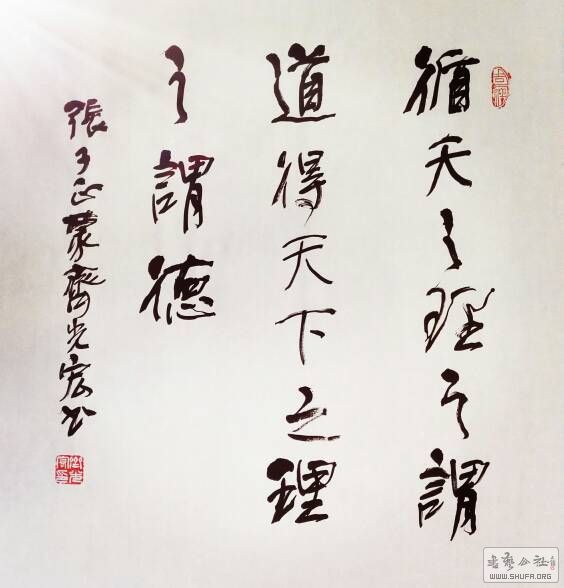 循天之理之謂
道得天下之理
之謂德
張子正蒙齊光宏書
書藝公社
WWW.SHUFA.ORG